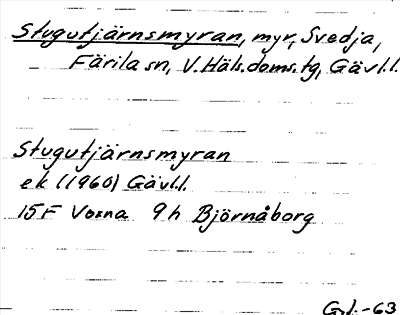 Stugutjärnsmyran, myr, Svedja,
Färila sn, V.Häls.doms.tg, Gävl.l.
Stugutjärnsmyran
ek (1960) Gävl.l.
15F Voxna 9h Björnåborg
G.l.-63